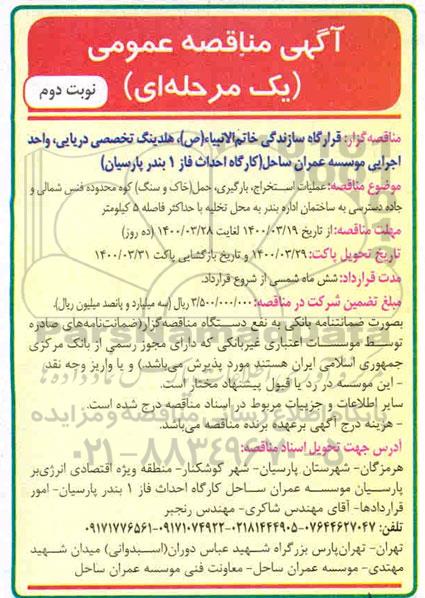 آگهی مناقصه عمومی
(یک مرحله‌ای)
نوبت دوم
مناقصه‌گزار: قرارگاه سازندگی خاتم‌الانبیاء(ص)، هلدینگ تخصصی دریایی، واحد
اجرایی موسسه عمران ساحل(کارگاه احداث فاز ۱ بندر پارسیان)
موضوع مناقصه: عملیات استخراج، بارگیری، حمل(خاک و سنگ) کوه محدوده فنس شمالی و
جاده دسترسی به ساختمان اداره بندر به محل تخلیه با حداکثر فاصله ۵ کیلومتر
مهلت مناقصه: از تاریخ ۱۴۰۰/۰۳/۱۹ لغایت ۱۴۰۰/۰۳/۲۸ (ده روز)
تاریخ تحویل پاکت: ۱۴۰۰/۰۳/۲۹ و تاریخ بازگشایی پاکت ۱۴۰۰/۰۳/۳۱
مدت قرارداد: شش ماه شمسی از شروع قرارداد.
مبلغ تضمین شرکت در مناقصه: ۳/۵۰۰/۰۰۰/۰۰۰ ریال (سه میلیارد و پانصد میلیون ریال).
بصورت ضمانتنامه بانکی به نفع دستگاه مناقصه‌گزار(ضمانت‌نامه‌های صادره
توسط موسسات اعتباری غیربانکی که دارای مجوز رسمی از بانک مرکزی
جمهوری اسلامی ایران هستند مورد پذیرش می‌باشد.) و یا واریز وجه نقد
- این موسسه در رد یا قبول پیشنهاد مختار است.
سایر اطلاعات و جزییات مربوط در اسناد مناقصه درج شده است.
- هزینه درج آگهی برعهده برنده مناقصه می‌باشد.
آدرس جهت تحویل اسناد مناقصه:
هرمزگان- شهرستان پارسیان- شهر کوشکنار- منطقه ویژه اقتصادی انرژی‌بر
پارسیان موسسه عمران ساحل کارگاه احداث فاز ۱ بندر پارسیان- امور
قراردادها- آقای مهندس شاکری- مهندس رنجبر
تلفن: ۰۷۶۴۴۶۲۷۰۴۷-۰۲۱۸۱۴۴۴۹۰۵-۰۹۱۷۱۰۷۴۹۲۲-۰۹۱۷۱۷۷۶۵۶۱
تهران- تهران‌پارس بزرگراه شهید عباس دوران(اسبدوانی) میدان شهید
مهتدی- موسسه عمران ساحل- معاونت فنی موسسه عمران ساحل